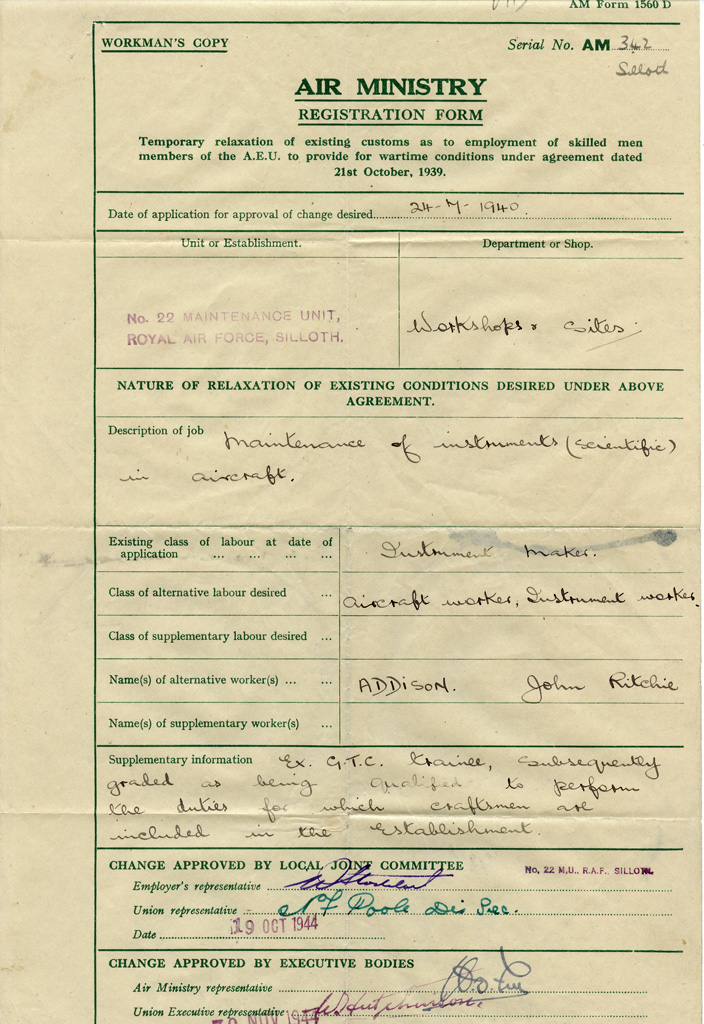 AM Form 1560 D
WORKMAN'S COPY
Serial No. AM 342
Silloth
AIR MINISTRY
REGISTRATION FORM
Temporary relaxation of existing customs as to employment of skilled men
members of the A.E.U. to provide for wartime conditions under agreement dated
21st October, 1939.
Date of application for approval of change desired 24-7-1940
Unit or Establishment.
Department or Shop.
No. 22 MAINTENANCE UNIT,
ROYAL AIR FORCE, SILLOTH.
Workshops & Sites.
NATURE OF RELAXATION OF EXISTING CONDITIONS DESIRED UNDER ABOVE
AGREEMENT.
Description of job Maintenance of instruments (scientific)
in aircraft.
Existing class of labour at date of
application ... ... ... ... Instrument Maker.
Class of alternative labour desired ... Aircraft worker, Instrument worker.
Class of supplementary labour desired ...
Name(s) of alternative worker(s) ... ... ADDISON. John Ritchie
Name(s) of supplementary worker(s) ...
Supplementary information Ex. G.T.C. trainee, subsequently
graded as being qualified to perform
the duties for which craftsmen are
included in the Establishment.
CHANGE APPROVED BY LOCAL JOINT COMMITTEE
No. 22 M.U., R.A.F., SILLOTH.
Employer's representative
Union representative N F Poole Dis Sec.
Date 19 OCT 1944
CHANGE APPROVED BY EXECUTIVE BODIES
Air Ministry representative
Union Executive representative Hutchinson.
NOV 1944